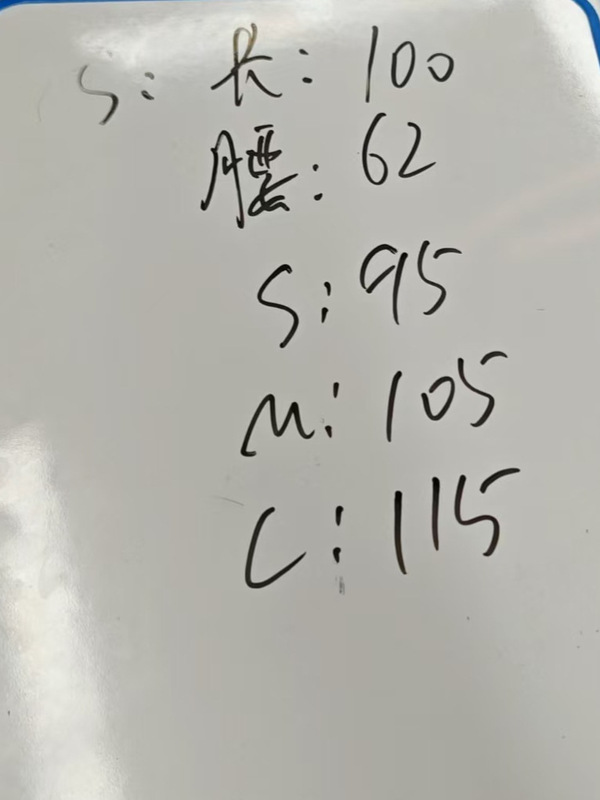 S: 长: 100
腰: 62
S: 95
M: 105
L: 115